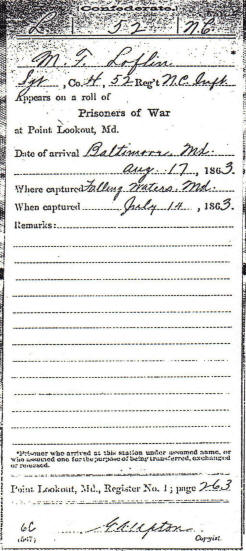 Confederate.
L 52 N.C.
M. F. Loflin
Sgt, Co. H, 52 Reg't N.C. Inft.
Appears on a roll of
Prisoners of War
at Point Lookout, Md.
Date of arrival Baltimore, Md.
Aug. 17, 1863.
Where captured Falling Waters, Md.
When captured July 14, 1863.
Remarks:
*Prisoner who arrived at this station under assumed name, or
who assumed one for the purpose of being transferred, exchanged
or released.
Point Lookout, Md., Register No. 1; page 263
6C
(647) Copyist.